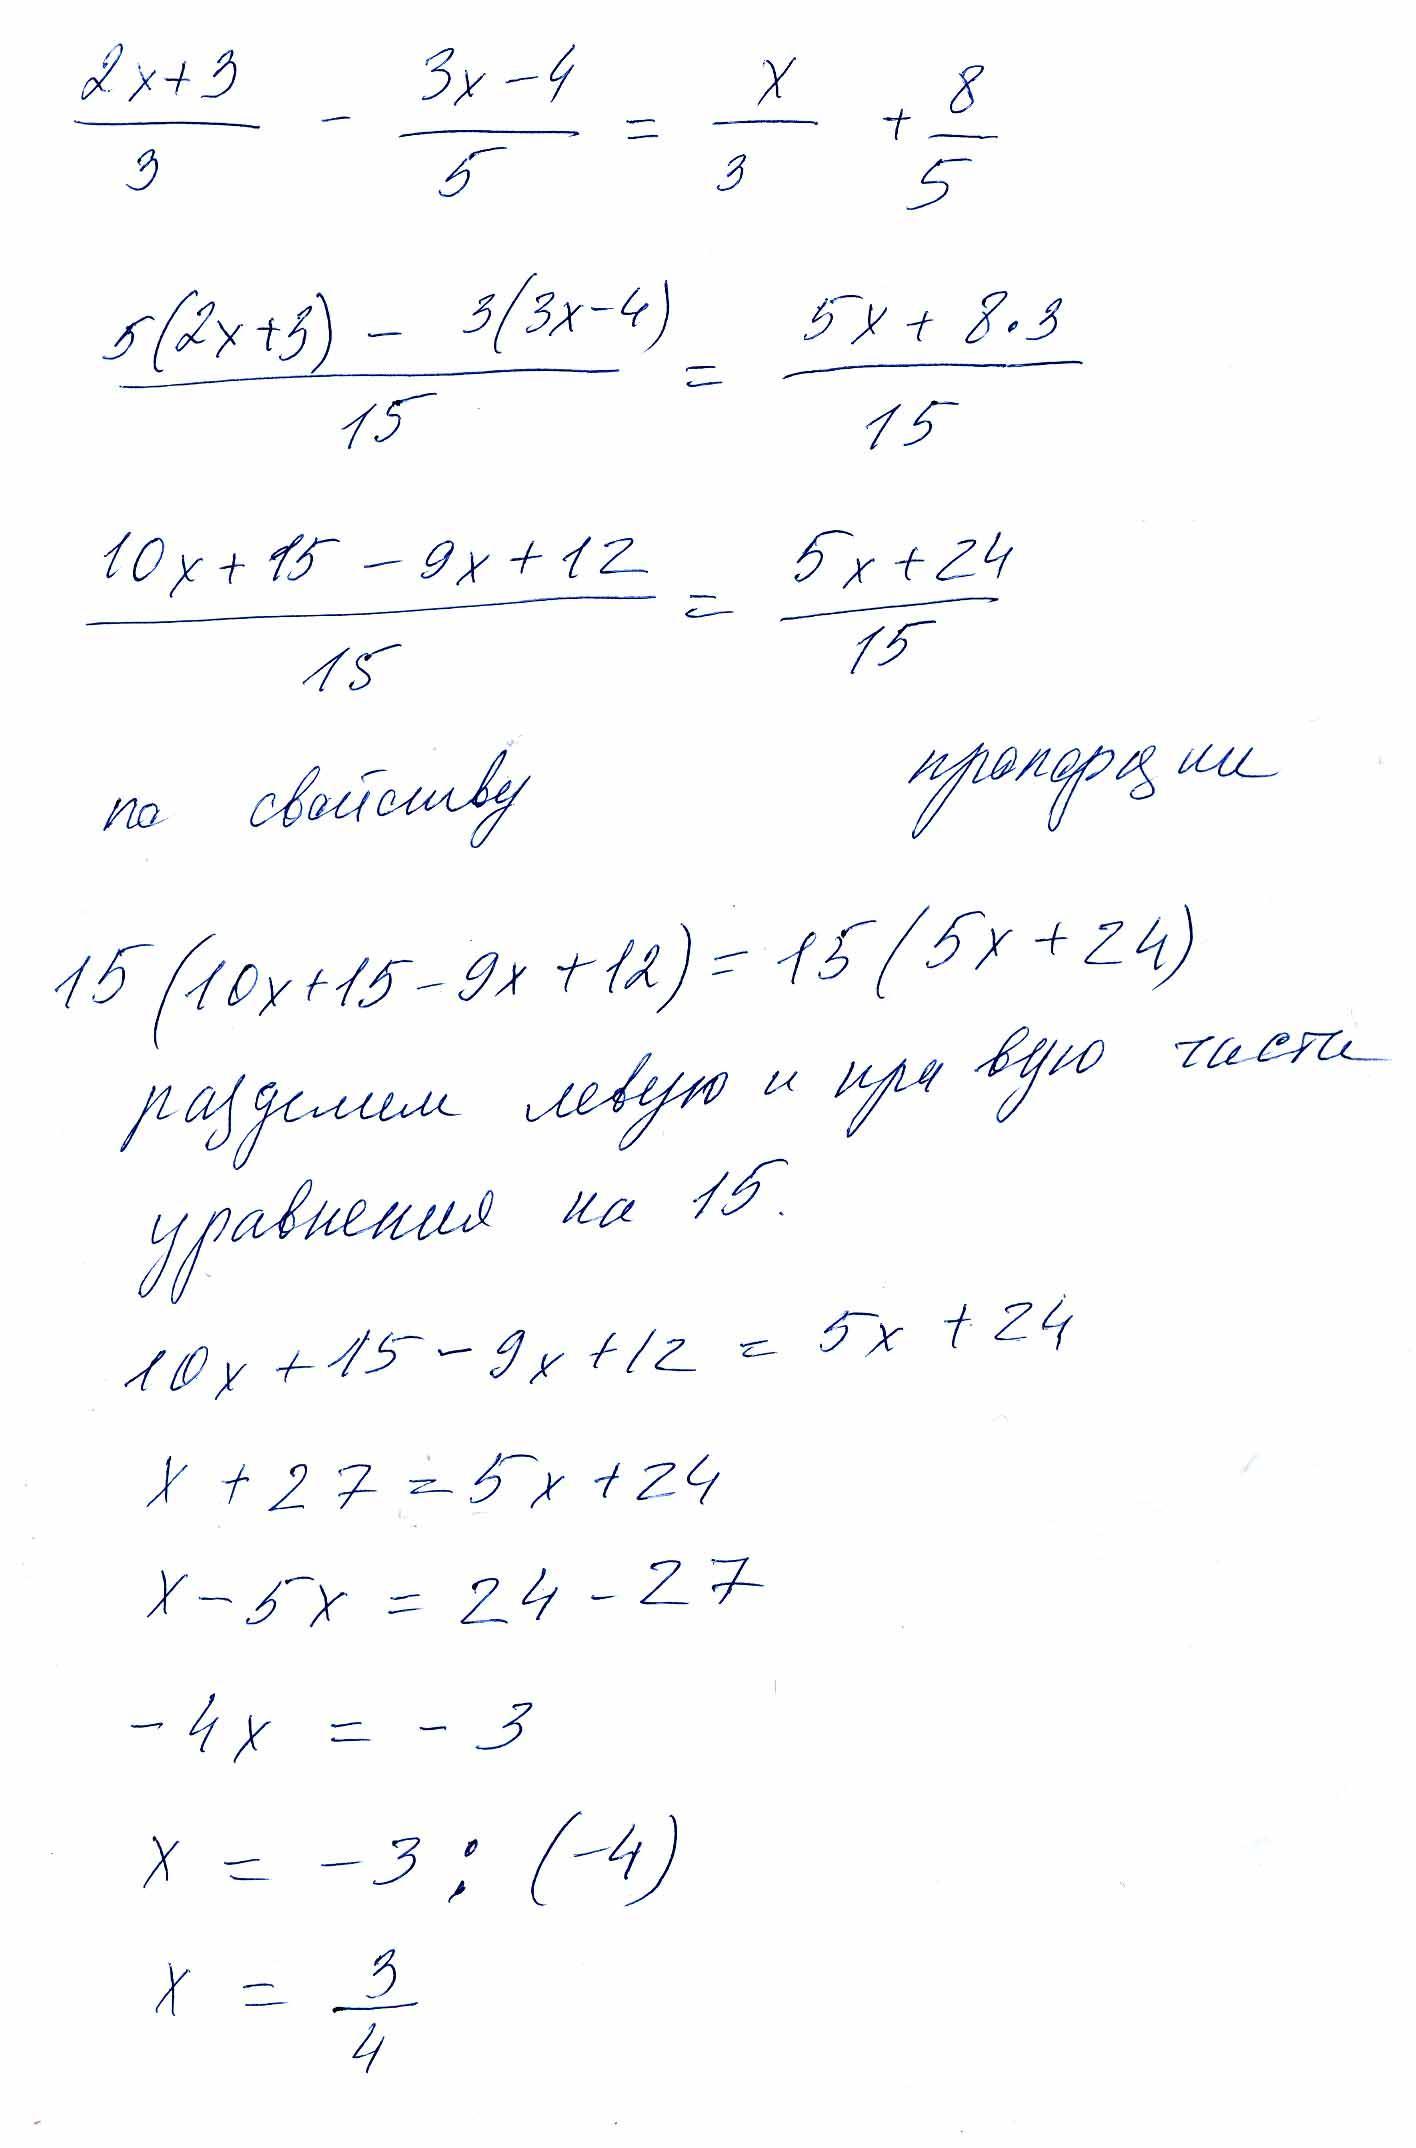 (2x+3)/3 - (3x-4)/5 = x/3 + 8/5
(5(2x+3) - 3(3x-4))/15 = (5x + 8·3)/15
(10x + 15 - 9x + 12)/15 = (5x + 24)/15
по свойству пропорции
15(10x+15-9x+12) = 15(5x+24)
разделим левую и правую части
уравнения на 15.
10x + 15 - 9x + 12 = 5x + 24
x + 27 = 5x + 24
x - 5x = 24 - 27
-4x = -3
x = -3 : (-4)
x = 3/4